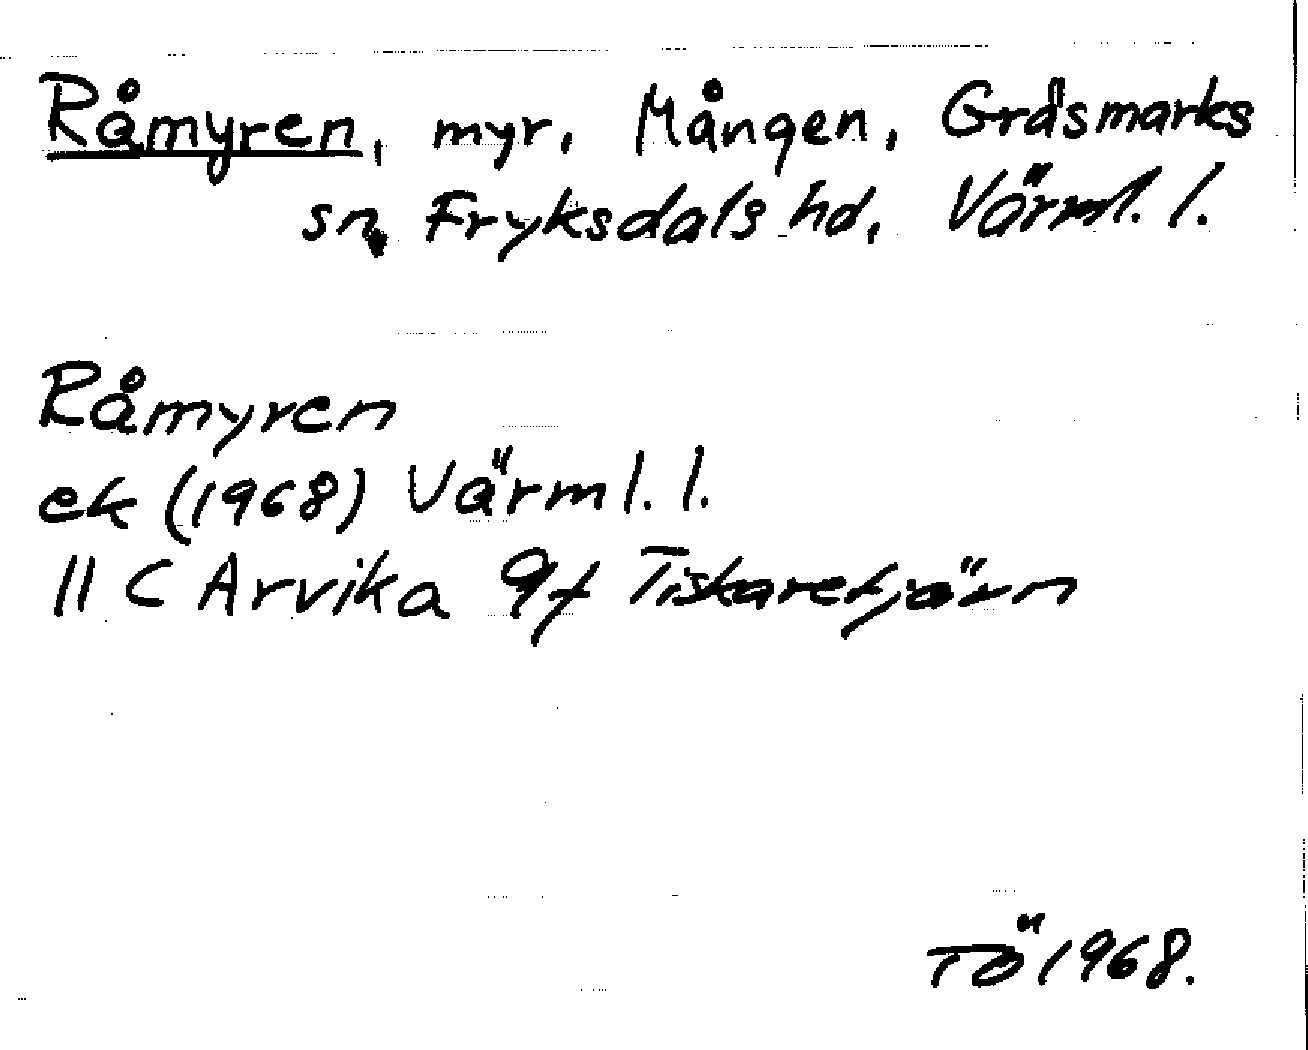 Råmyren, myr, Mången, Gräsmarks
sn, Fryksdals hd, Värml. l.
Råmyren
ek (1968) Värml. l.
11 C Arvika 9f Tiskaretjärn
TÖ 1968.